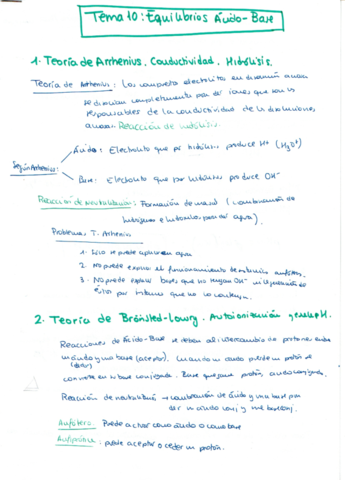 Tema 10: Equilibrios Ácido-Base
1. Teoría de Arrhenius. Conductividad. Hidrólisis.
Teoría de Arrhenius: Los compuestos electrolitos en disolución acuosa
se disocian completamente para dar iones que son los
responsables de la conductividad de las disoluciones
acuosas. Reacción de hidrólisis.
Según Arrhenius:
Ácido: Electrolito que por hidrólisis produce H+ (H3O+)
Base: Electrolito que por hidrólisis produce OH-
Reacción de Neutralización: Formación de una sal (combinación de
para dar agua).
Problemas T. Arrhenius
1. Solo se puede aplicar en agua
2. No puede explicar el funcionamiento de sustancias anfóteras.
3. No puede explicar bases que no tengan OH-
2. Teoría de Brönsted-Lowry. Autoionización y escala pH.
Reacciones de Ácido-Base se deben al intercambio de protones entre
un ácido y una base (aceptor). Cuando un ácido pierde un protón se
(dador)
convierte en su base conjugada. Base que gana protón, ácido conjugado.
Reacción de neutralización → combinación de ácido y una base para
dar un ácido conj. y una base conj.
Anfótero: Puede actuar como ácido o como base
Anfiprótico: puede aceptar o ceder un protón.